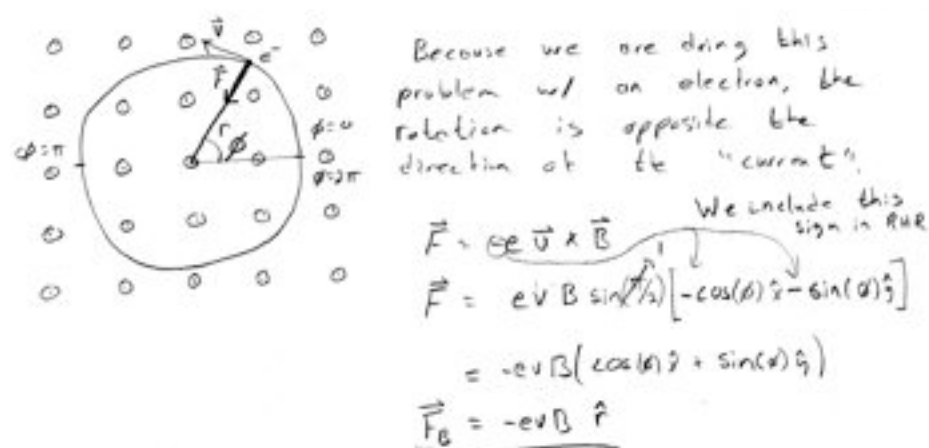 v⃗
e⁻
F⃗
r
ϕ
ϕ=0
ϕ=π
ϕ=2π
Because we are doing this
problem w/ an electron, the
rotation is opposite the
direction of the "current".
We include this
sign in RHR
F⃗ = -e v⃗ × B⃗
F⃗ = evB sin(π/2) [-cos(ϕ) x̂ - sin(ϕ) ŷ]
1
= -evB(cos(ϕ) x̂ + sin(ϕ) ŷ)
F⃗_B = -evB r̂